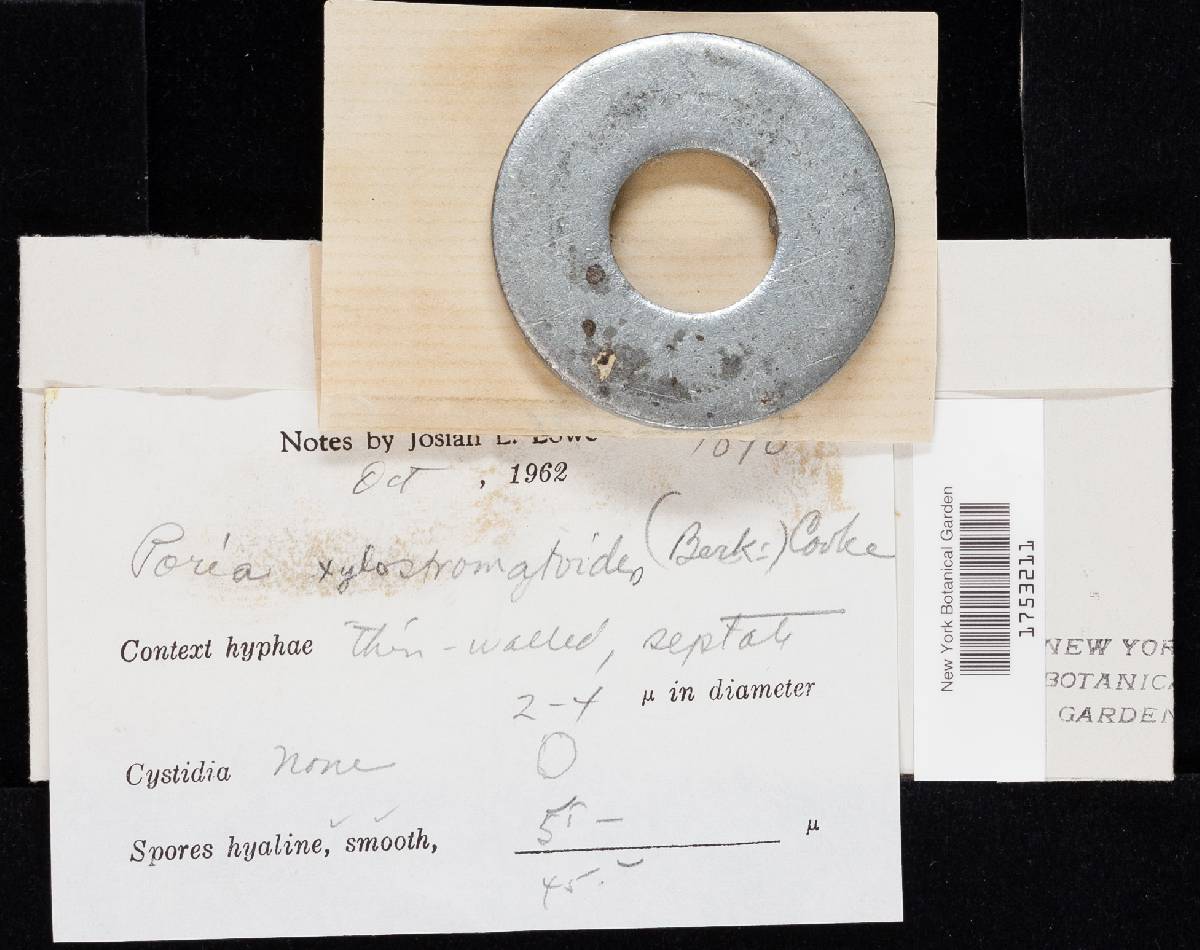 Notes by Josiah L. Lowe
Oct , 1962
Poria xylostromatoides (Berk.) Cooke
Context hyphae thin-walled, septate
2-4 μ in diameter
Cystidia none
Spores hyaline, smooth, μ
New York Botanical Garden
1753211
NEW YOR
BOTANICA
GARDEN